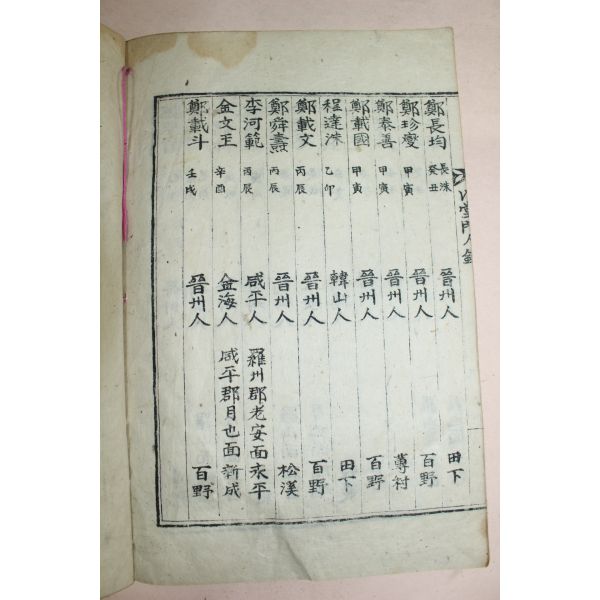 堂門人錄
鄭長均 長洙 癸丑 晉州人 田下
鄭珍燮 甲寅 晉州人 百野
鄭泰善 甲寅 晉州人 蓴村
鄭載國 甲寅 晉州人 百野
程達洙 乙卯 韓山人 田下
鄭載文 丙辰 晉州人 百野
鄭舜燾 丙辰 晉州人 松溪
李河範 丙辰 咸平人 羅州郡老安面永平
金文王 辛酉 金海人 咸平郡月也面新成
鄭載斗 壬戌 晉州人 百野